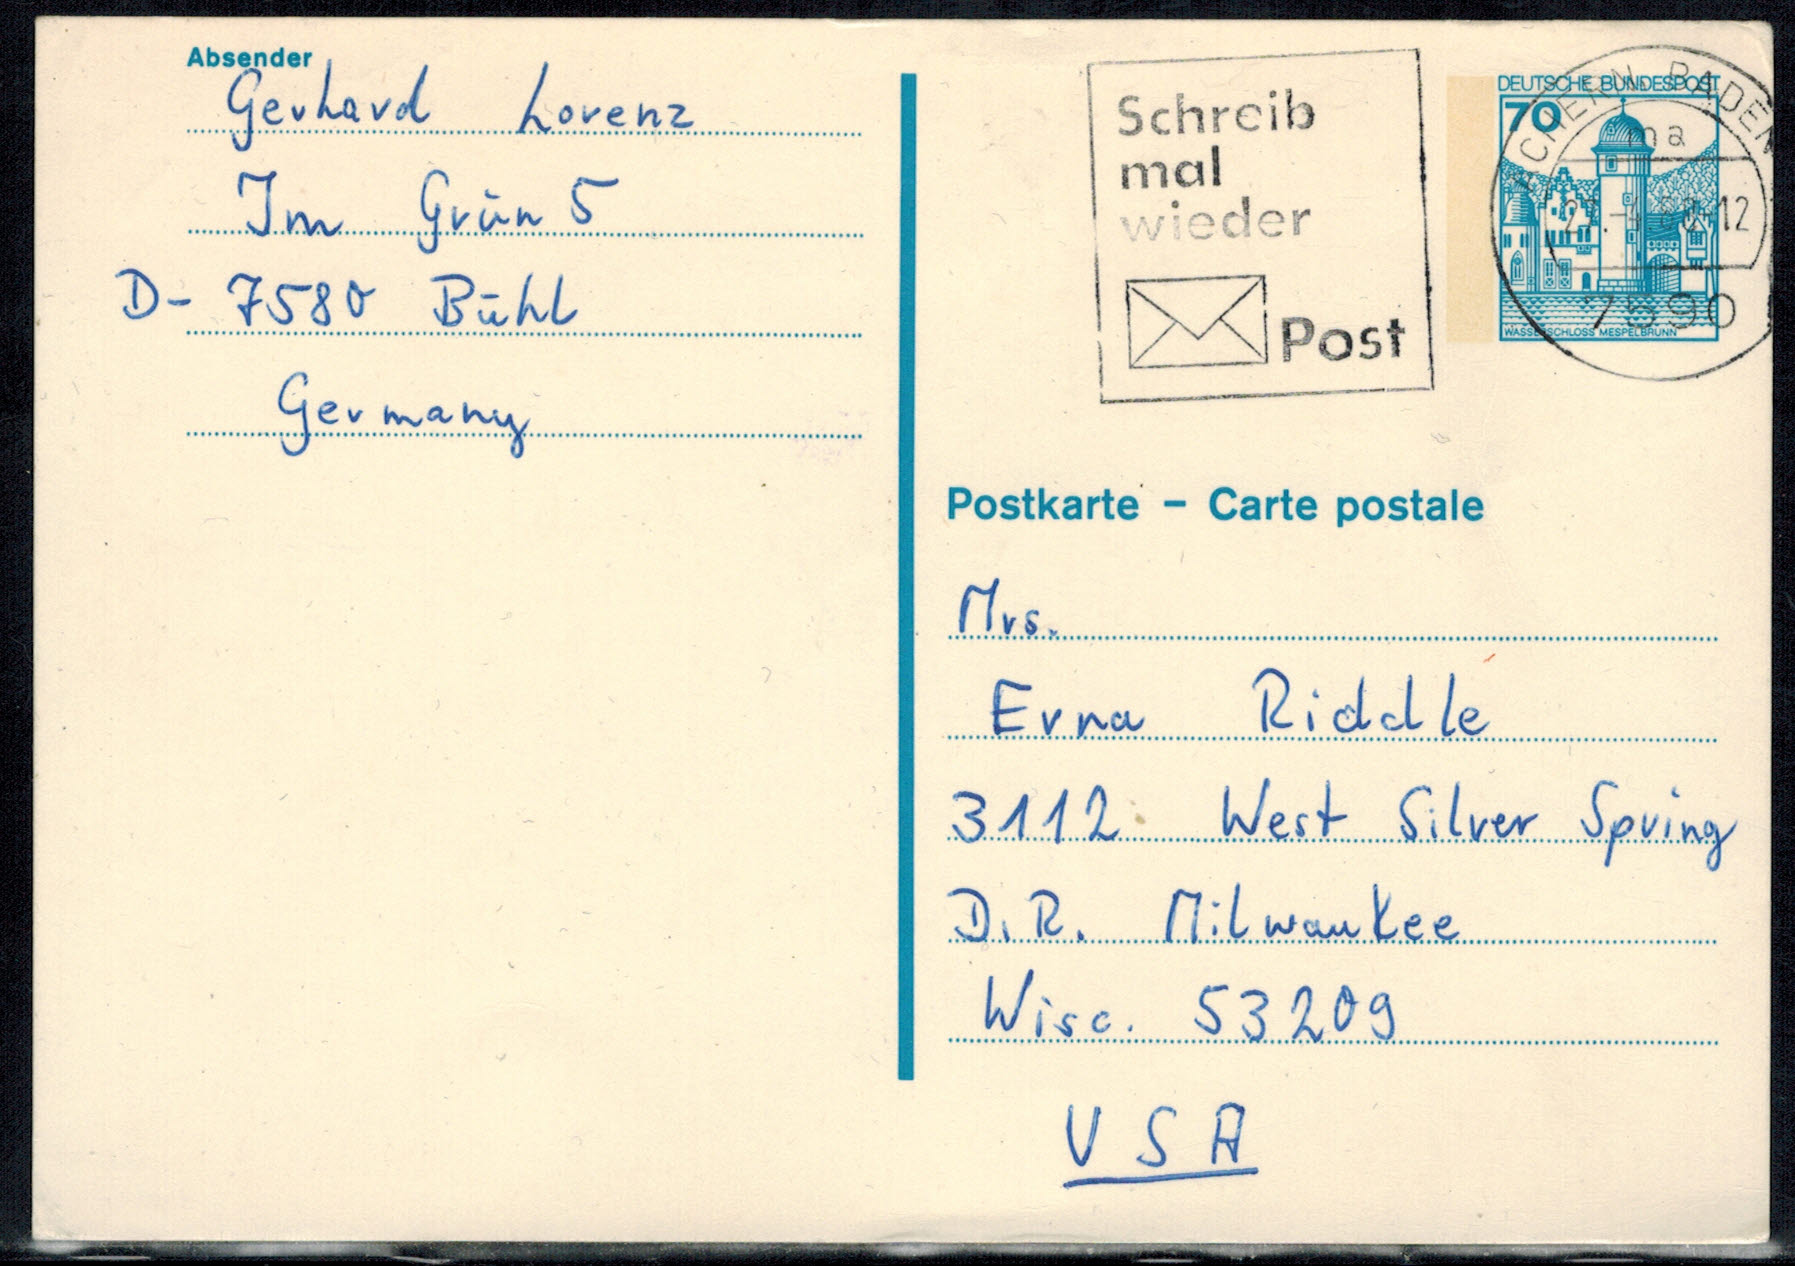 Absender
Gerhard Lorenz
Im Grün 5
D- 7580 Bühl
Germany
Schreib
mal
wieder
Post
DEUTSCHE BUNDESPOST
70
WASSERSCHLOSS MESPELBRUNN
ACHERN, BADEN
ma
12
7590
Postkarte - Carte postale
Mrs.
Erna Riddle
3112 West Silver Spring
D.R. Milwaukee
Wisc. 53209
USA